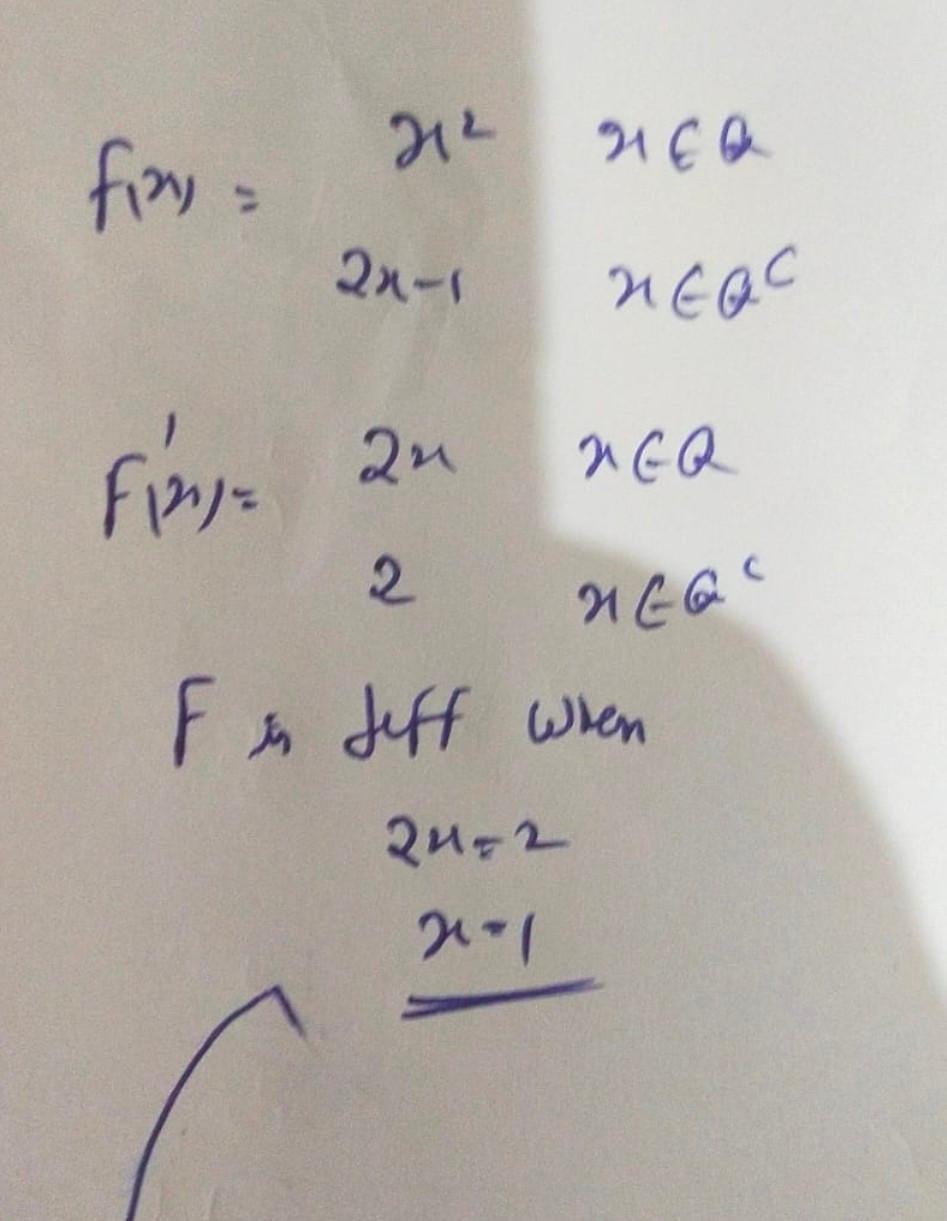 f(x) = x² x ∈ Q
2x-1 x ∈ Qᶜ
F'(x) = 2x x ∈ Q
2 x ∈ Qᶜ
F is diff when
2x = 2
x = 1